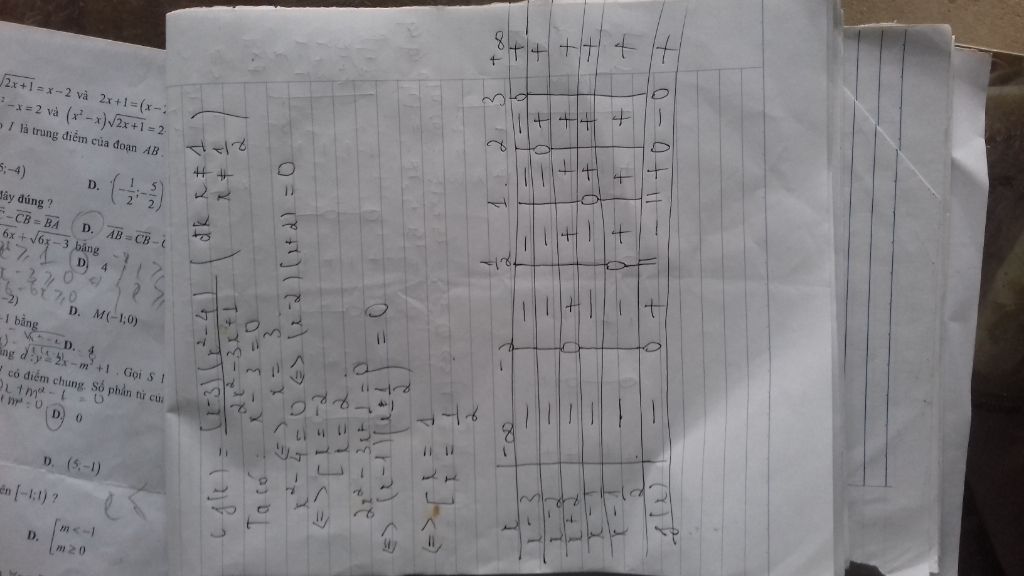 √2x+1 = x − 2 và 2x+1 = (x −
− x = 2 và (x² − x)√2x+1 = 2
I là trung điểm của đoạn AB.
;−4)
D. (−1/2; 5/2)
đây đúng ?
− CB = BA
D. AB = CB −
6x + √6x−3 bằng
D. 4
D. M(−1;0)
−1 bằng
D. 4
2x − m² + 1. Gọi S
có điểm chung. Số phần tử của
D. 0
D. (5;−1)
ên [−1;1) ?
D. [m < −1
m ≥ 0
g(x) = (x−3)(x²−4) / 2x²−3x+1 (đk x ≠ 1
x ≠ 1/2)
Ta có: x − 3 = 0
<=> x = 3
x² − 4 = 0 <=> (x−2)(x+2) = 0
<=> [x = −2
x = 2
2x² − 3x + 1 = 0
<=> [x = 1
x = 1/2
x −∞ −2 1/2 1 2 3 +∞
x − 3 − − − − − 0 +
x − 2 − − − − 0 + +
x + 2 − 0 + + + + +
x − 1 − − − 0 + + +
x − 1/2 − − 0 + + + +
g(x) − 0 + || − || + 0 − 0 +